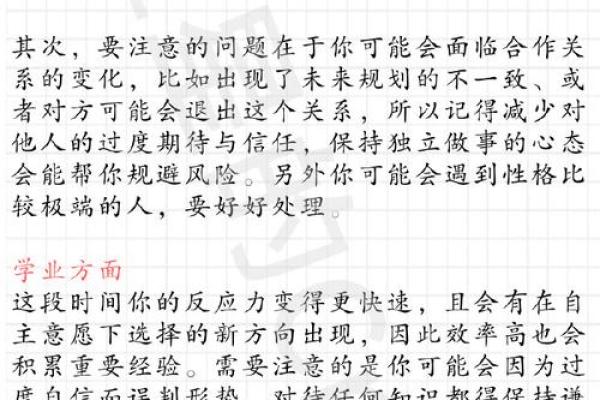 其次，要注意的问题在于你可能会面临合作关
系的变化，比如出现了未来规划的不一致、或
者对方可能会退出这个关系，所以记得减少对
他人的过度期待与信任，保持独立做事的心态
会能帮你规避风险。另外你可能会遇到性格比
较极端的人，要好好处理。
学业方面
这段时间你的反应力变得更快速，且会有在自
主意愿下选择的新方向出现，因此效率高也会
积累重要经验。需要注意的是你可能会因为过
度自信而误判形势，对待任何知识都得保持谦